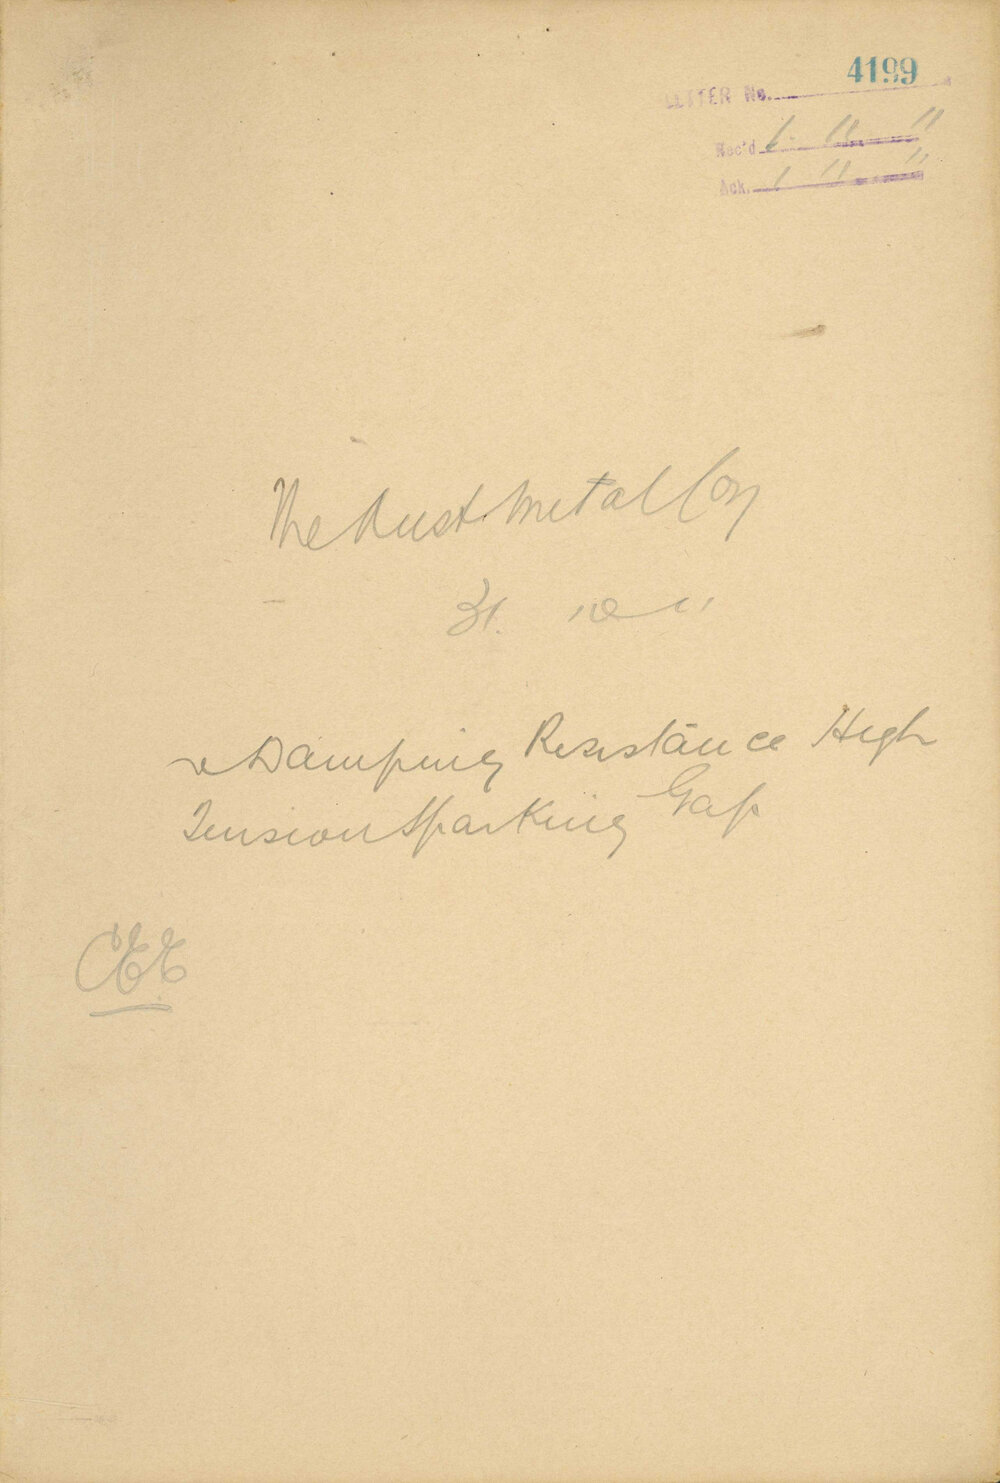 4199
LETTER No.
Rec'd 6 11 11
Ack. 1 11 11
The Aust. Metal Coy
31. 10 11
Damping Resistance High
Tension Sparking Gap